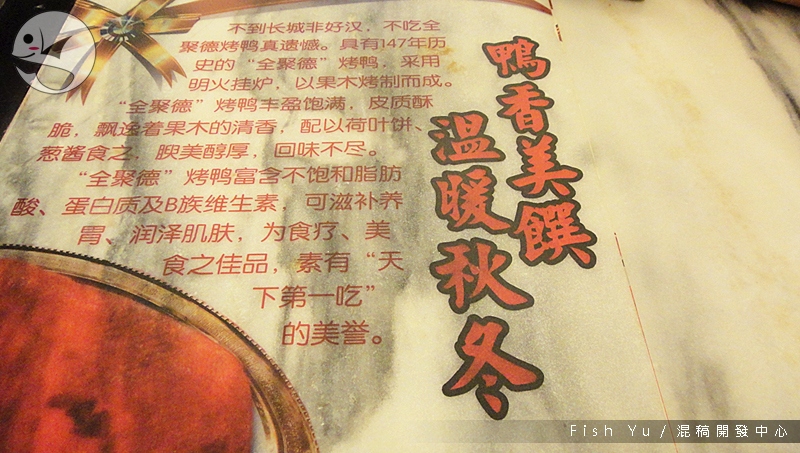 不到长城非好汉，不吃全
聚德烤鸭真遗憾。具有147年历
史的“全聚德”烤鸭，采用
明火挂炉，以果木烤制而成。
“全聚德”烤鸭丰盈饱满，皮质酥
脆，飘逸着果木的清香，配以荷叶饼、
葱酱食之，腴美醇厚，回味不尽。
“全聚德”烤鸭富含不饱和脂肪
酸、蛋白质及B族维生素，可滋补养
胃、润泽肌肤，为食疗、美
食之佳品，素有“天
下第一吃”
的美誉。
鴨香美饌
温暖秋冬
Fish Yu / 混稿開發中心